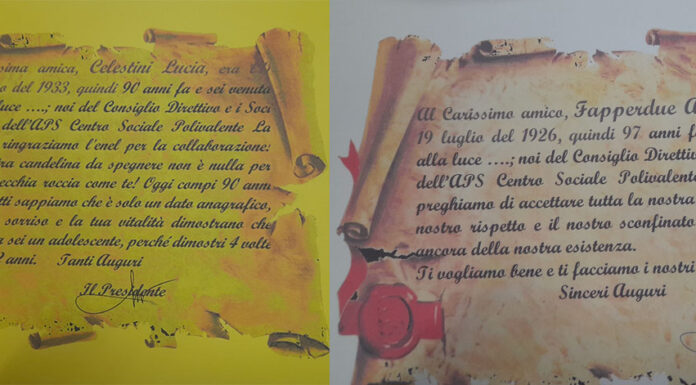 sima amica, Celestini Lucia, era
del 1933, quindi 90 anni fa e sei venuta
luce ....; noi del Consiglio Direttivo e i Soci
dell'APS Centro Sociale Polivalente La
ringraziamo l'enel per la collaborazione:
ra candelina da spegnere non è nulla per
ecchia roccia come te! Oggi compi 90 anni
tti sappiamo che è solo un dato anagrafico,
sorriso e la tua vitalità dimostrano che
a sei un adolescente, perché dimostri 4 volte
anni. Tanti Auguri
Il Presidente
Al Carissimo amico, Fapperdue A
19 luglio del 1926, quindi 97 anni f
alla luce ....; noi del Consiglio Direttiv
dell'APS Centro Sociale Polivalente
preghiamo di accettare tutta la nostra
nostro rispetto e il nostro sconfinato
ancora della nostra esistenza.
Ti vogliamo bene e ti facciamo i nostri
Sinceri Auguri